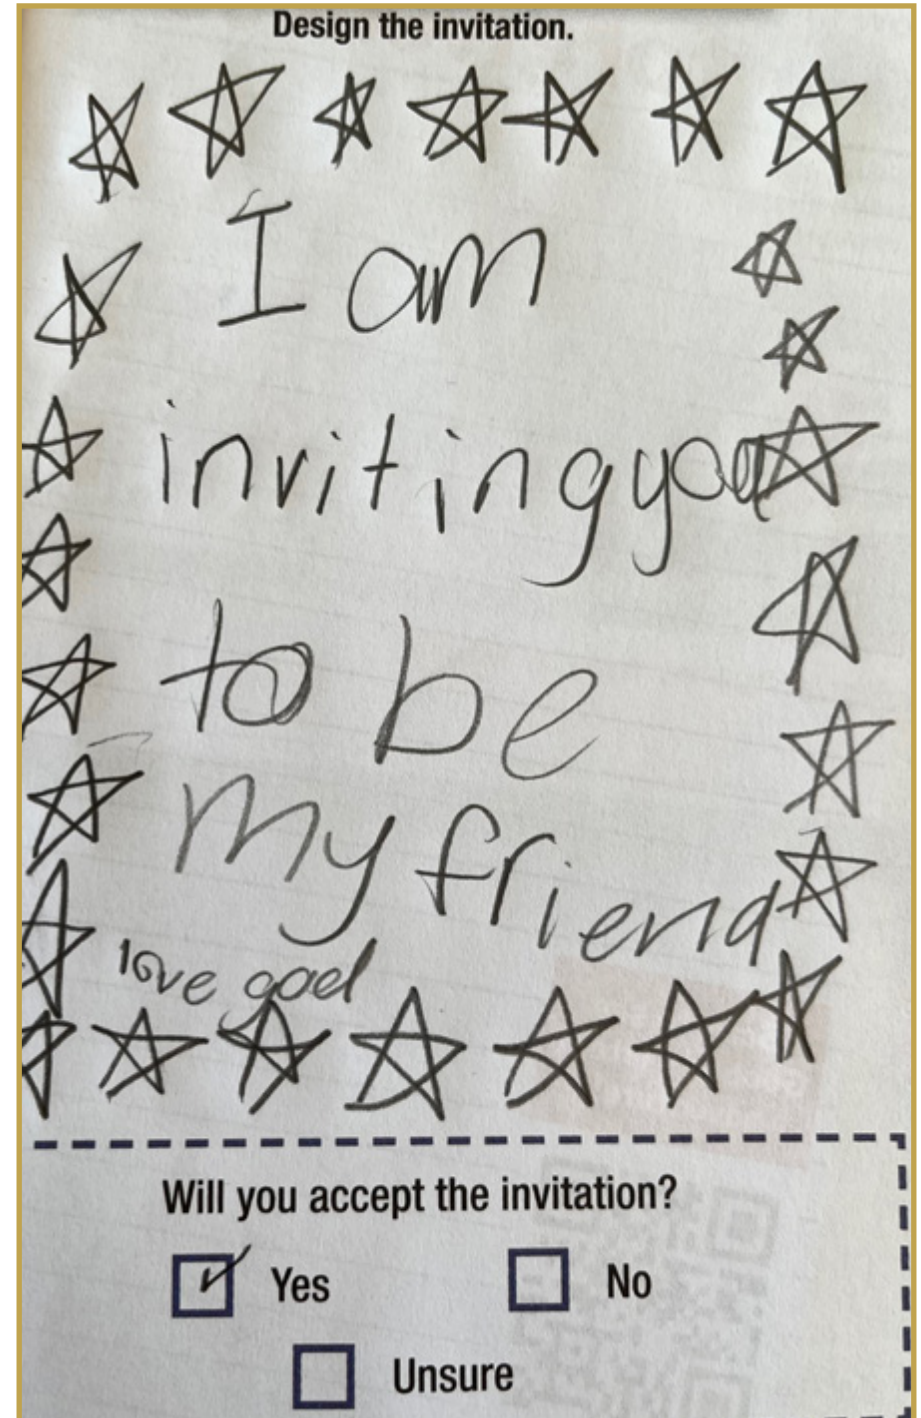 Design the invitation.
I am
inviting you
to be
my friend
love god
Will you accept the invitation?
Yes No
Unsure